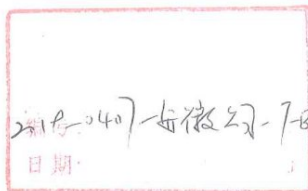 编号:
2018-0407-安徽公司-7-6
日期: